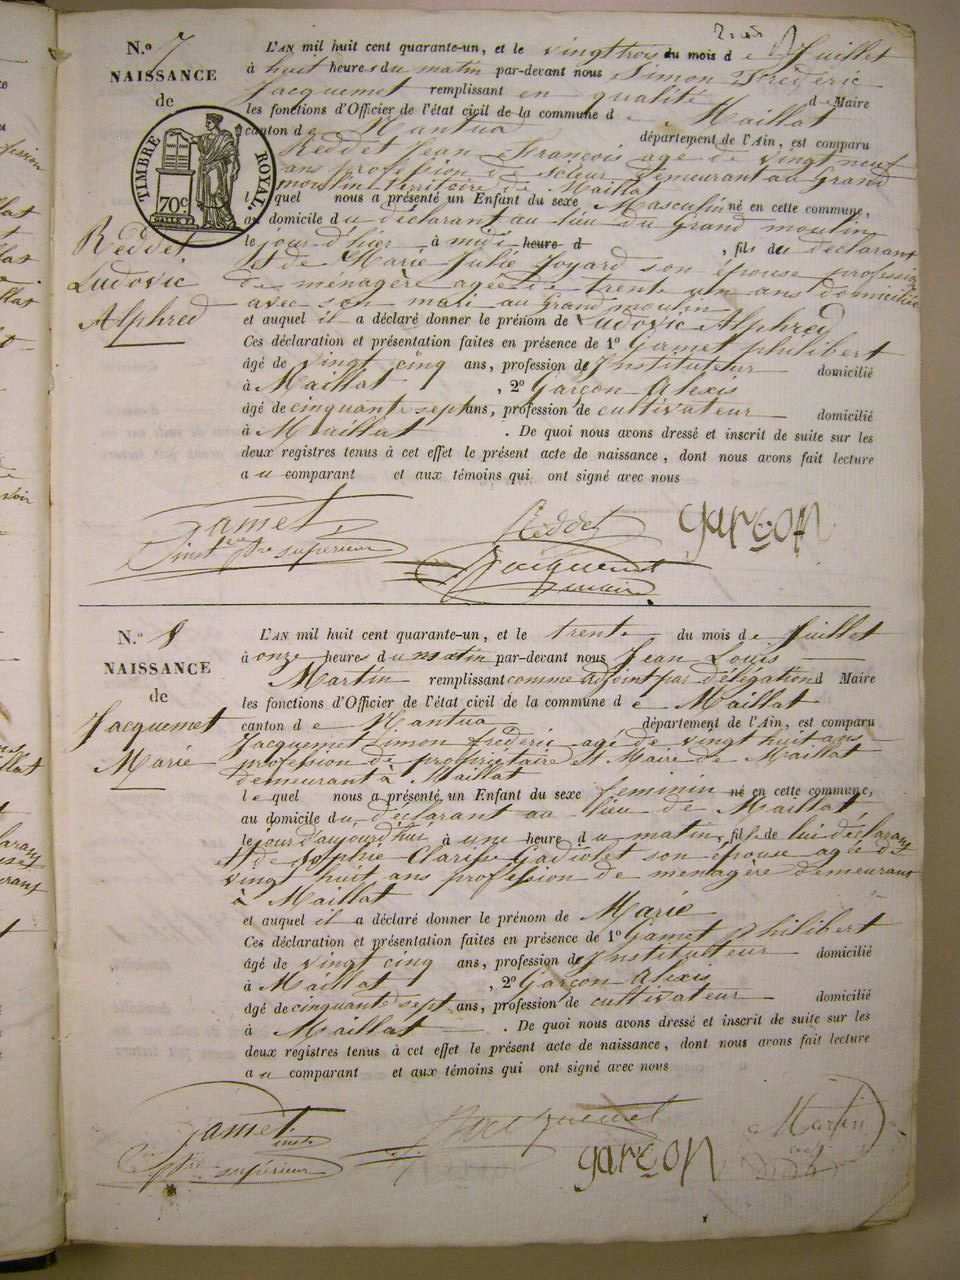 N.º 7
NAISSANCE
de
TIMBRE ROYAL
70c
Reddet
Ludovic
Alphred
L'AN mil huit cent quarante-un, et le vingt trois du mois de Juillet
à huit heures du matin par-devant nous Simon Frédéric
Jacquemet remplissant en qualité de Maire
les fonctions d'Officier de l'état civil de la commune de Maillat
canton de Nantua département de l'Ain, est comparu
Reddet Jean François agé de vingt neuf
ans profession de demeurant au Grand
moulin territoire de Maillat
lequel nous a présenté un Enfant du sexe Masculin né en cette commune,
au domicile du déclarant au lieu du Grand moulin
le jour d'hier à midi heure d , fils du déclarant
et de Marie Julie Joyard son épouse profession
de ménagère agée de trente un ans domiciliée
avec son mari au Grand moulin
et auquel il a déclaré donner le prénom de Ludovic Alphred
Ces déclaration et présentation faites en présence de 1º Gamet philibert
âgé de vingt cinq ans, profession de Instituteur domicilié
à Maillat , 2º Garçon Alexis
âgé de cinquante sept ans, profession de cultivateur domicilié
à Maillat . De quoi nous avons dressé et inscrit de suite sur les
deux registres tenus à cet effet le présent acte de naissance, dont nous avons fait lecture
au comparant et aux témoins qui ont signé avec nous
Gamet Reddet garçon
supérieur Jacquemet
maire
N.º 8
NAISSANCE
de
Jacquemet
Marie
L'AN mil huit cent quarante-un, et le trente du mois de Juillet
à onze heures du matin par-devant nous Jean Louis
Martin remplissant comme adjoint par délégation d Maire
les fonctions d'Officier de l'état civil de la commune de Maillat
canton de Nantua département de l'Ain, est comparu
Jacquemet Simon frédéric agé de vingt huit ans
profession de propriétaire et Maire de Maillat
demeurant à Maillat
lequel nous a présenté un Enfant du sexe feminin né en cette commune,
au domicile du déclarant au lieu de Maillat
le jour d'aujourd'hui à une heure du matin, fils de lui déclarant
et de Sophie Clarisse Gadiolet son épouse agée de
vingt huit ans profession de menagère demeurant
à Maillat
et auquel il a déclaré donner le prénom de Marie
Ces déclaration et présentation faites en présence de 1º Gamet philibert
âgé de vingt cinq ans, profession de Instituteur domicilié
à Maillat , 2º Garçon Alexis
âgé de cinquante sept ans, profession de cultivateur domicilié
à Maillat . De quoi nous avons dressé et inscrit de suite sur les
deux registres tenus à cet effet le présent acte de naissance, dont nous avons fait lecture
au comparant et aux témoins qui ont signé avec nous
Gamet Jacquemet Martin
supérieur garçon